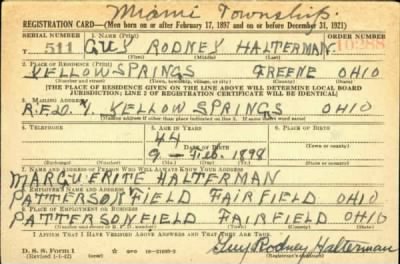 Miami Township
REGISTRATION CARD—(Men born on or after February 17, 1897 and on or before December 31, 1921)
SERIAL NUMBER 1. NAME (Print) ORDER NUMBER
T 511 GUY RODNEY HALTERMAN 10288
(First) (Middle) (Last)
2. PLACE OF RESIDENCE (Print)
YELLOW SPRINGS GREENE OHIO
(Number and street) (Town, township, village, or city) (County) (State)
[THE PLACE OF RESIDENCE GIVEN ON THE LINE ABOVE WILL DETERMINE LOCAL BOARD
JURISDICTION; LINE 2 OF REGISTRATION CERTIFICATE WILL BE IDENTICAL]
3. MAILING ADDRESS
R.F.D. 1. YELLOW SPRINGS OHIO
[Mailing address if other than place indicated on line 2. If same insert word same]
4. TELEPHONE 5. AGE IN YEARS 6. PLACE OF BIRTH
44
DATE OF BIRTH (Town or county)
9 - Feb. 1898
(Exchange) (Number) (Mo.) (Day) (Yr.) (State or country)
7. NAME AND ADDRESS OF PERSON WHO WILL ALWAYS KNOW YOUR ADDRESS
MARGUERITE HALTERMAN
8. EMPLOYER'S NAME AND ADDRESS
PATTERSON FIELD FAIRFIELD OHIO
9. PLACE OF EMPLOYMENT OR BUSINESS
PATTERSON FIELD FAIRFIELD OHIO
(Number and street or R. F. D. number) (Town) (County) (State)
I AFFIRM THAT I HAVE VERIFIED ABOVE ANSWERS AND THAT THEY ARE TRUE.
D. S. S. Form 1
(Revised 1-1-42) (over) 16—21630-2 Guy Rodney Halterman
(Registrant's signature)